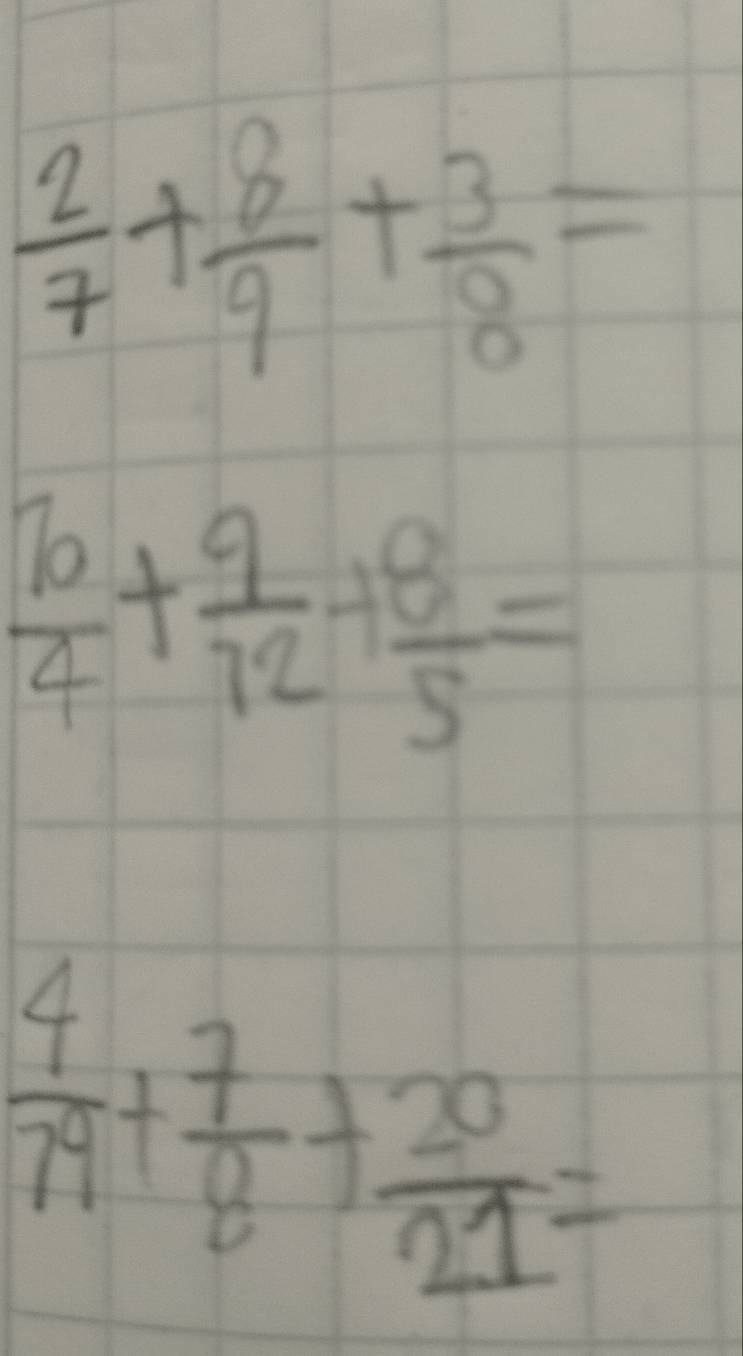 2/7 + 8/9 + 3/8 =
10/4 + 9/12 + 8/5 =
4/19 + 7/8 + 20/21 =